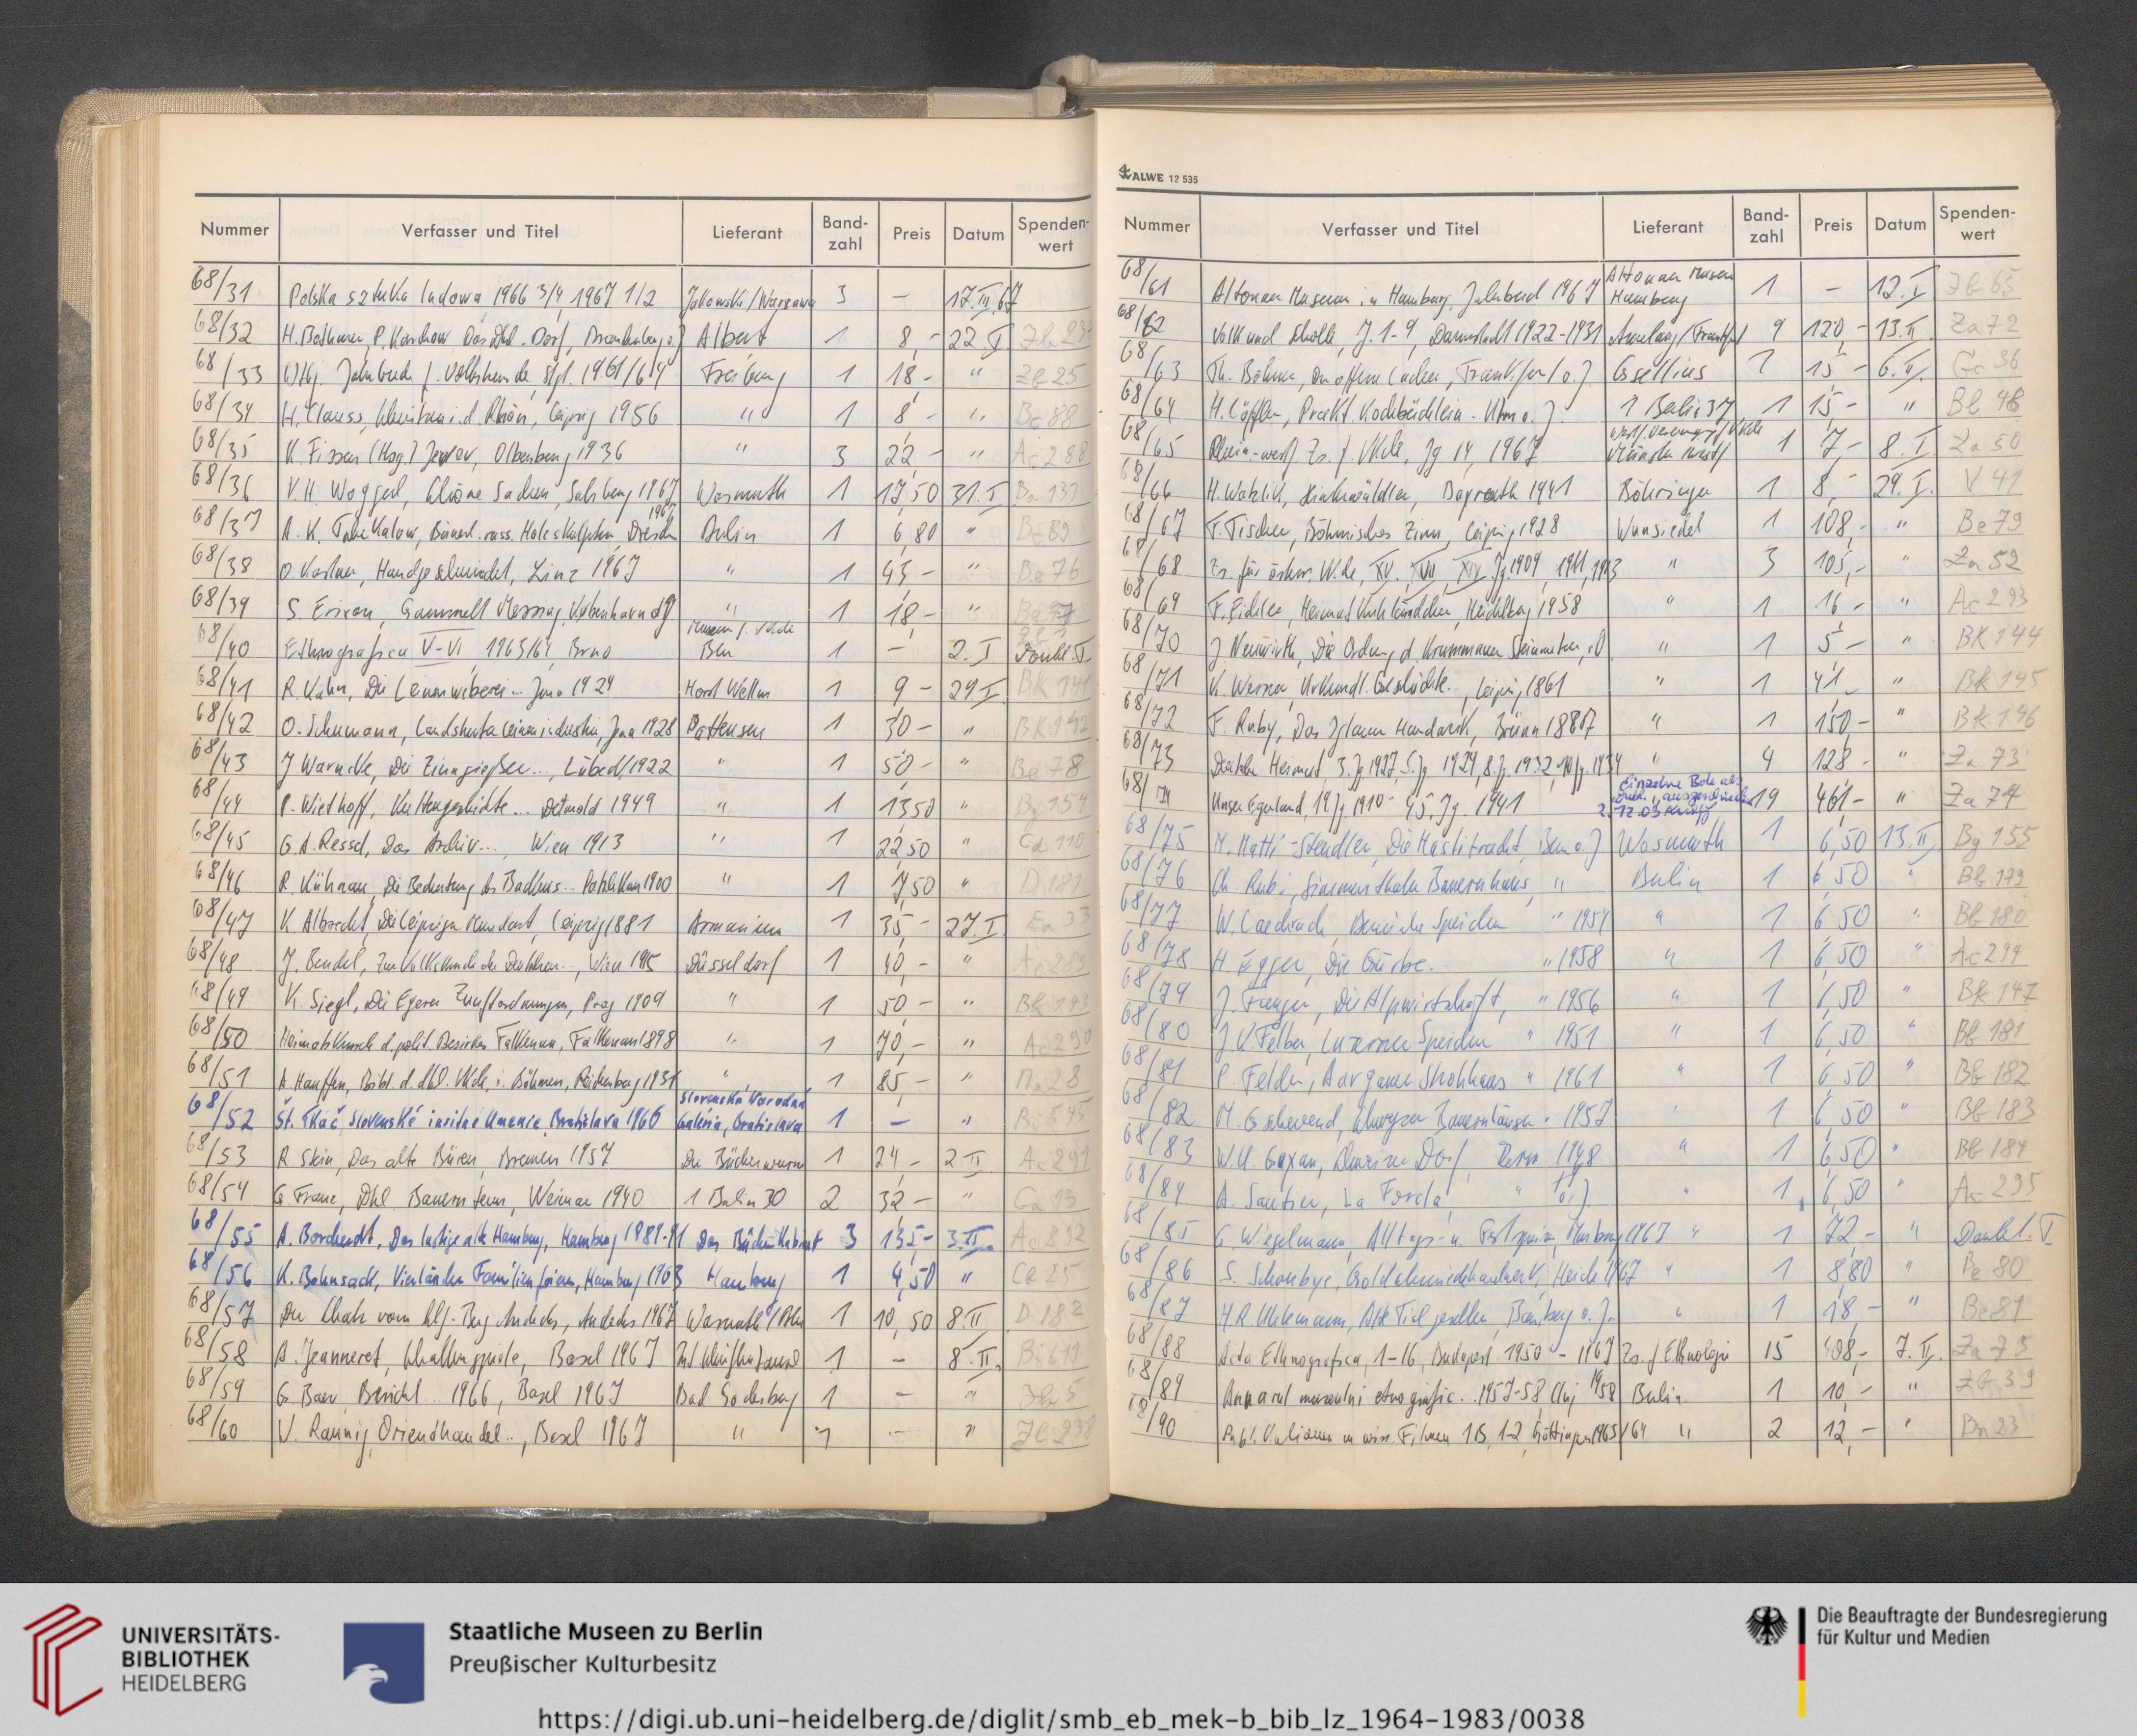 Nummer Verfasser und Titel Lieferant Band-zahl Preis Datum Spenden-wert
68/31 Polska sztuka ludowa 1966 3/4, 1967 1/2 Jakowski/Warszawa 3 – 17.III.67
68/32 Albert 1 8,– 22.I
68/33 Jahrbuch f. Volkskunde Freiburg 1 18,– " Zb 25
68/34 H. Clauss, i.d. Rhön, Leipzig 1956 " 1 8,– " Bc 88
68/35 K. Fissen (Hsg.) Jever, Oldenburg 1936 " 3 22,– " Ac 288
68/36 K.H. Waggerl, Schöne Sachen, Salzburg 1967 Wasmuth 1 17,50 31.I
68/37 Dresden 1967 Berlin 1 6,80 " Bc 89
68/38 O. Kastner, Handgeschmiedet, Linz 1967 " 1 43,– " Be 76
68/39 Gammelt Messing, København " 1 18,– "
68/40 Ethnografica V–VI 1963/64, Brno Museum f. Vkde Brno 1 – 2.I
68/41 R. Kuhn, Die Leinenweberei... Jena 1924 Horst Wellm 1 9,– 29.I BK 141
68/42 O. Schumann, Landshuter Leinenindustrie, Jena 1928 Pattensen 1 30,– " BK 142
68/43 J. Warncke, Die Zinngießer..., Lübeck 1922 " 1 50,– " Be 78
68/44 P. Wiethoff, ... Detmold 1949 " 1 13,50 " By 154
68/45 G.A. Ressel, Das Archiv..., Wien 1913 " 1 22,50 " Cd 110
68/46 R. Kühnau, Die Bedeutung des Backens.. Patschkau 1900 " 1 7,50 " D 181
68/47 K. Albrecht, Die Leipziger Mundart, Leipzig 1881 Armarium 1 35,– 27.I
68/48 J. Bendel, Zur Volkskunde der Deutschen.., Wien 1915 Düsseldorf 1 40,– " Ac 289
68/49 K. Siegl, Die Egerer Zunftordnungen, Prag 1909 " 1 50,– " BK 143
68/50 Heimatskunde d. polit. Bezirkes Falkenau, Falkenau 1898 " 1 70,– " Ac 290
68/51 A. Hauffen, Bibl. d. dtsl. Vkde. i. Böhmen, Reichenberg 1931 " 1 85,– "
68/52 Št. Tkáč, Slovenské insitné umenie, Bratislava 1966 Slovenská Národná Galéria, Bratislava 1 – "
68/53 R. Stein, Das alte Büren, Bremen 1957 Der Bücherwurm 1 24,– 2.II Ac 291
68/54 G. Franz, Dtsl. Bauerntum, Weimar 1940 1 Berlin 30 2 32,– "
68/55 A. Borcherdt, Das lustige alte Hamburg, Hamburg 1889-91 Das Bücherkabinet 3 135,– 3.II.
68/56 K. Bohnsack, Vierländer Familienfeiern, Hamburg 1963 Hamburg 1 4,50 "
68/57 Der Schatz vom hlg. Berg Andechs, Andechs 1967 Wasmuth/Bln 1 10,50 8.II D 182
68/58 A. Jeanneret, Basel 1967 1 – 8.II.
68/59 G. Baer, Bericht... 1966, Basel 1967 Bad Godesberg 1 – "
68/60 Basel 1967 " 1 – "
ALWE 12 535
Nummer Verfasser und Titel Lieferant Band-zahl Preis Datum Spenden-wert
68/61 Altonaer Museum in Hamburg, Jahrbuch 1967 Altonaer Museum Hamburg 1 – 12.I Zb 65
68/62 Volk und Scholle, J. 1-9, Darmstadt 1922-1931 Amelang/Frankfurt 9 120,– 13.II. Za 72
68/63 Th. Böhme, Frankfurt o.J. Gsellius 1 15,– 6.II. Gc 36
68/64 H. Löffler, Prakt. Kochbüchlein. Ulm o.J. 1 Berlin 37 1 15,– " Bl 48
68/65 Rhein-westf. Zs. f. Vkde, Jg 14, 1967 1 7,– 8.I Za 50
68/66 H. Watzlik, Hinterwäldler, Bayreuth 1941 Böhringer 1 8,– 29.I. V 41
68/67 F. Tischer, Böhmisches Zinn, Leipzig 1928 Wunsiedel 1 108,– " Be 79
68/68 Zs. für österr. Vkde, XV. XVII, XIX Jg 1909, 1911, 1913 " 3 105,– " Za 52
68/69 Heimat Kuhländchen, Heidelberg 1958 " 1 16,– " Ac 293
68/70 J. Neuwirth, Die Ordnung d. Krummauer Steinmetzen, " 1 5,– " BK 144
68/71 K. Werner, Urkundl. Geschichte., Leipzig 1861 " 1 41,– " BK 145
68/72 F. Ruby, Das Iglauer Handwerk, Brünn 1887 " 1 150,– " BK 146
68/73 Deutsche Heimat 3. Jg 1927, 5. Jg. 1929, 8. Jg. 1932, 10. Jg. 1934 " 4 128,– " Za 73
68/74 Unser Egerland, 14. Jg. 1910 - 45. Jg. 1941 Einzelne Bde als ausgeschieden 2.12.03 19 461,– " Za 74
68/75 M. Matti-Stendler, Die Haslitracht, Bern o.J Wasmuth 1 6,50 13.II By 155
68/76 Ch. Rubi, Simmenthaler Bauernhaus, " Berlin 1 6,50 " Bb 179
68/77 W. Laedrach, Bernische Speicher " 1954 " 1 6,50 " Bb 180
68/78 H. Egger, Die Gürbe. " 1958 " 1 6,50 " Ac 294
68/79 Die Alpwirtschaft, " 1956 " 1 6,50 " BK 147
68/80 J.K. Felber, Luzerner Speicher " 1951 " 1 6,50 " Bb 181
68/81 P. Felder, Aargauer Strohhaus " 1961 " 1 6,50 " Bb 182
68/82 M. Gschwend, Schwyzer Bauernhäuser " 1957 " 1 6,50 " Bb 183
68/83 Schweizer Dorf, Bern 1948 " 1 6,50 " Bb 184
68/84 A. Sautier, La Forcla, " o.J " 1 6,50 " Ac 295
68/85 G. Wiegelmann, Alltags- u. Festspeisen, Marburg 1967 " 1 72,– " Dankl. T
68/86 S. Schoubye, Goldschmiedehandwerk, Heide 1967 " 1 8,80 " Be 80
68/87 Bamberg o.J. " 1 18,– " Be 81
68/88 Acta Ethnografica, 1-16, Budapest 1950 - 1967 Zs. f. Ethnologie 15 408,– 7.II. Za 75
68/89 Anuarul muzeului etnografic.. 1957-58, Cluj 1958 Berlin 1 10,– " Zb 39
68/90 Göttingen 1963/64 " 2 12,– " Bn 23
UNIVERSITÄTS-
BIBLIOTHEK
HEIDELBERG
Staatliche Museen zu Berlin
Preußischer Kulturbesitz
Die Beauftragte der Bundesregierung
für Kultur und Medien
https://digi.ub.uni-heidelberg.de/diglit/smb_eb_mek-b_bib_lz_1964-1983/0038